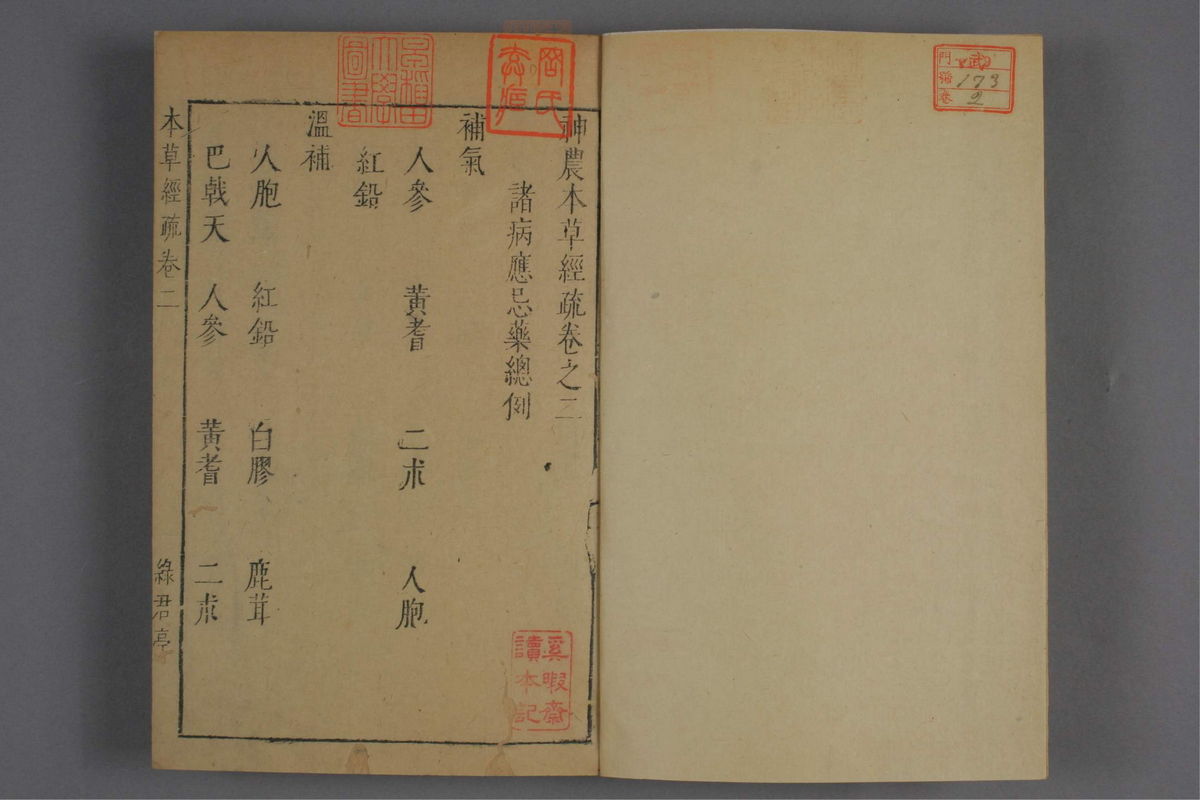 神農本草經疏卷之二
諸病應忌藥總例
補氣
人參 黃耆 二朮 人胞
紅鉛
溫補
人胞 紅鉛 白膠 鹿茸
巴戟天 人參 黃耆 二朮
本草經疏卷二 綠君亭
早稻田
大學
圖書
奚暇齋
讀本記
門
號 173
卷 2